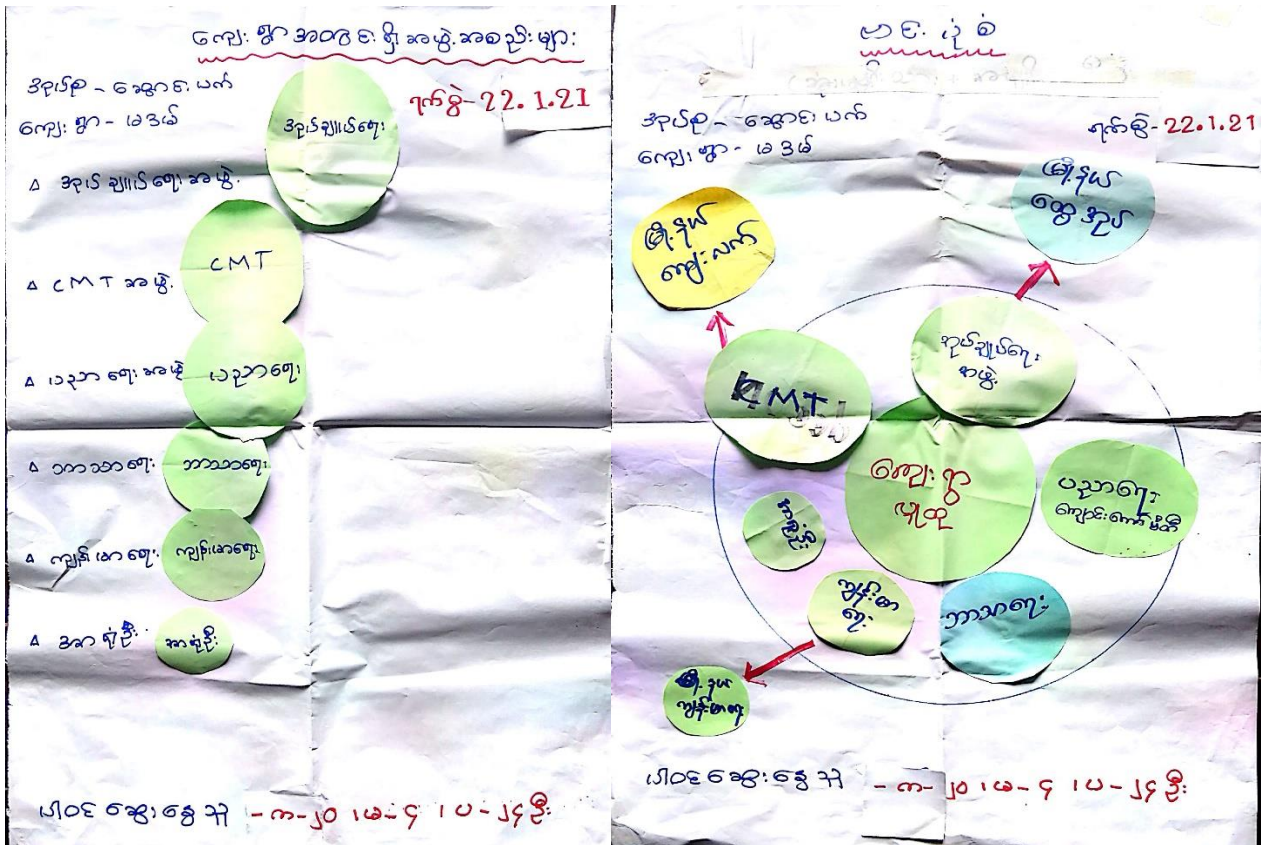 ကျေးရွာအတွင်းရှိအဖွဲ့အစည်းများ
အုပ်စု - ဆောင်းပက်
ကျေးရွာ - မဒမ်
ရက်စွဲ - 22.1.21
အုပ်ချုပ်ရေး
▵ အုပ်ချုပ်ရေးအဖွဲ့
CMT
▵ CMT အဖွဲ့
▵ ပညာရေးအဖွဲ့
ပညာရေး
▵ ဘာသာရေး
ဘာသာရေး
▵ ကျန်းမာရေး
ကျန်းမာရေး
▵ အာရုံဦး
အာရုံဦး
ပါဝင်ဆွေးနွေးသူ - က - ၂၀ ၊ မ - ၄ ၊ ပ - ၂၄ ဦး
ဗင်းပုံစံ
အုပ်စု - ဆောင်းပက်
ကျေးရွာ - မဒမ်
ရက်စွဲ - 22.1.21
မြို့နယ်
ထွေအုပ်
မြို့နယ်
ကျေးလက်
အုပ်ချုပ်ရေး
အဖွဲ့
CMT
ကျေးရွာ
လူထု
ပညာရေး
ကျောင်းကော်မတီ
အာရုံဦး
ကျန်းမာ
ရေး
ဘာသာရေး
မြို့နယ်
ကျန်းမာရေး
ပါဝင်ဆွေးနွေးသူ - က - ၂၀ ၊ မ - ၄ ၊ ပ - ၂၄ ဦး